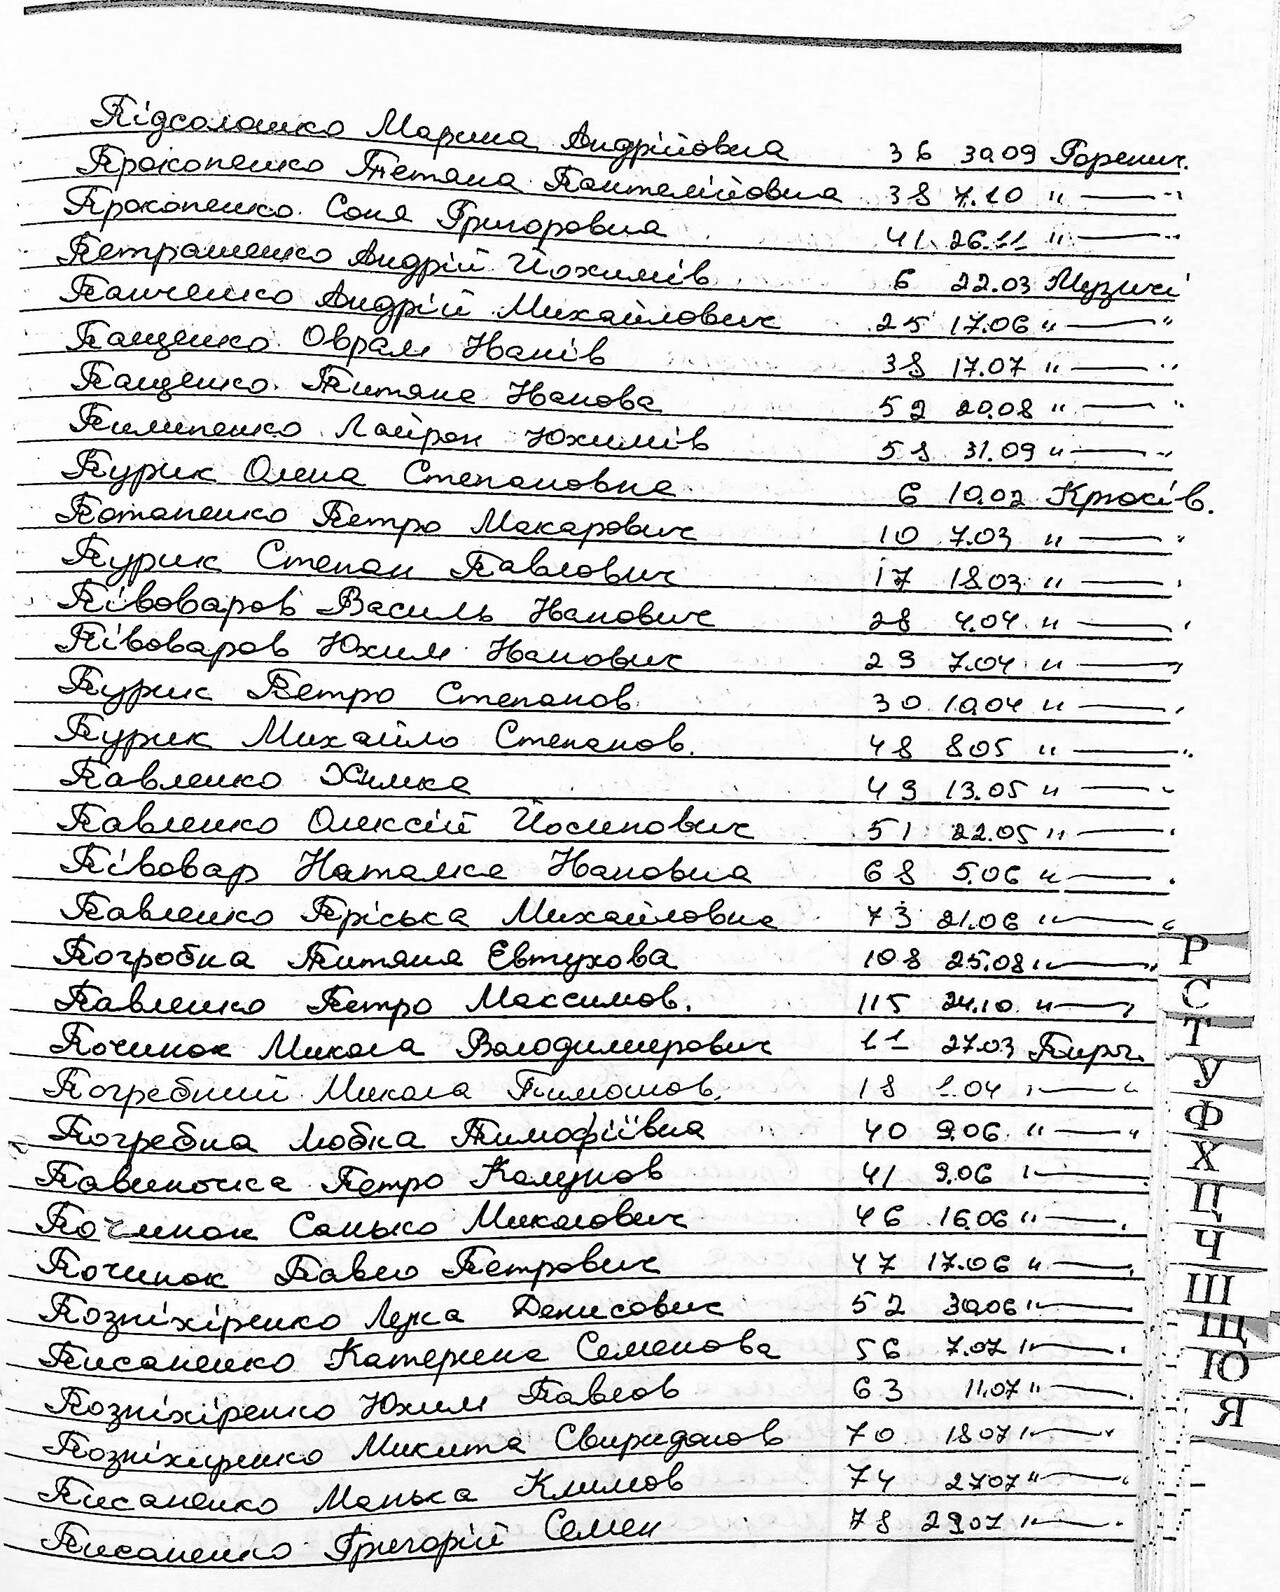 Підсолошко Марина Андрійовна 36 30.09 Горенич.
Прокопенко Тетяна Пантелійовна 38 7.10 " — "
Прокопенко Соня Григоровна 41 26.11 " — "
Петрашенко Андрій Йохимів 6 22.03 Музичі
Панченко Андрій Михайлович 25 17.06 " — "
Пащенко Оврам Іванів 38 17.07 " — "
Пащенко Титяна Іванова 52 20.08 " — "
Пилипенко Лаврон Юхимів 58 31.09 " — "
Пурик Олена Степановна 6 10.02 Крюків.
Потапенко Петро Макарович 10 7.03 " — "
Пурик Степан Павлович 17 18.03 " — "
Півоваров Василь Іванович 28 4.04 " — "
Півоваров Юхим Іванович 29 7.04 " — "
Пурик Петро Степанов 30 10.04 " — "
Пурик Михайло Степанов. 48 8.05 " — "
Павленко Химка 49 13.05 " — "
Павленко Олексій Йосипович 51 22.05 " — "
Півовар Наталка Івановна 68 5.06 " — "
Павленко Пріська Михайловна 73 21.06 " — "
Погробна Титяна Євтухова 108 25.08 " — "
Павленко Петро Максимов. 115 24.10. " — "
Починок Микола Володимирович 11 27.03 Бирч.
Погребний Микола Тимошов. 18 1.04 " — "
Погребна Любка Тимофіївна 40 9.06. " — "
Петро 41 9.06 " —
Починок Санько Миколович 46 16.06 " — "
Починок Павло Петрович 47 17.06 " — "
Позніхіренко Лука Денисович 52 30.06 " —
Писаненко Катерина Семенова 56 7.07 " — "
Позніхіренко Юхим Павлов 63 11.07 " — "
Позніхиренко Микита Свиридонов 70 18.07 " — "
Писаненко Манька Климов 74 27.07 " — "
Писаненко Григорій Семен 78 29.07 " — "
Р
С
Т
У
Ф
Х
Ц
Ч
Ш
Щ
Ю
Я